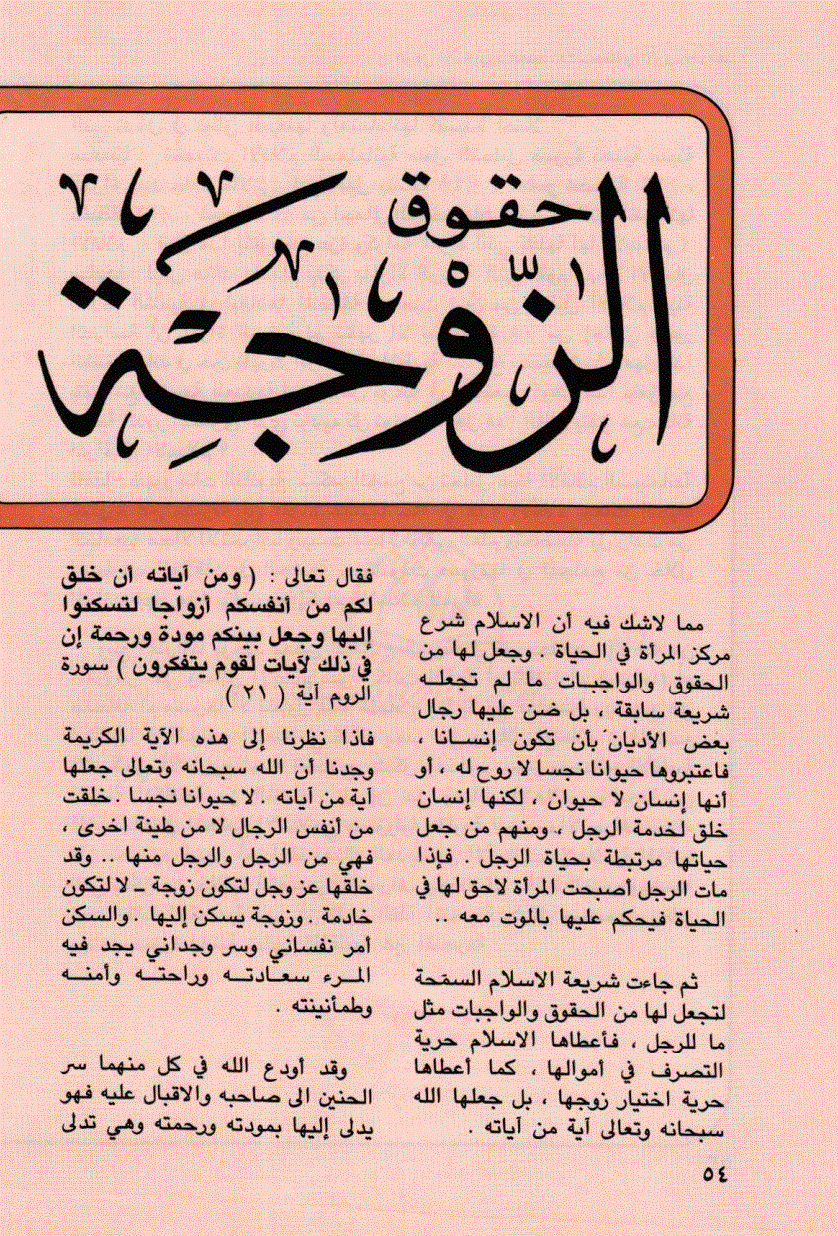 حقوق
الزّوجة
مما لاشك فيه أن الاسلام شرع
مركز المرأة في الحياة . وجعل لها من
الحقوق والواجبات ما لم تجعله
شريعة سابقة ، بل ضن عليها رجال
بعض الأديان بأن تكون إنسانا ،
فاعتبروها حيوانا نجسا لا روح له ، أو
أنها إنسان لا حيوان ، لكنها إنسان
خلق لخدمة الرجل ، ومنهم من جعل
حياتها مرتبطة بحياة الرجل . فإذا
مات الرجل أصبحت المرأة لاحق لها في
الحياة فيحكم عليها بالموت معه ..
ثم جاءت شريعة الاسلام السمحة
لتجعل لها من الحقوق والواجبات مثل
ما للرجل ، فأعطاها الاسلام حرية
التصرف في أموالها ، كما أعطاها
حرية اختيار زوجها ، بل جعلها الله
سبحانه وتعالى آية من آياته .
فقال تعالى : ( ومن آياته أن خلق
لكم من أنفسكم أزواجا لتسكنوا
إليها وجعل بينكم مودة ورحمة إن
في ذلك لآيات لقوم يتفكرون ) سورة
الروم آية ( ٢١ )
فاذا نظرنا إلى هذه الآية الكريمة
وجدنا أن الله سبحانه وتعالى جعلها
آية من آياته . لا حيوانا نجسا . خلقت
من أنفس الرجال لا من طينة اخرى ،
فهي من الرجل والرجل منها .. وقد
خلقها عز وجل لتكون زوجة ــ لا لتكون
خادمة . وزوجة يسكن إليها . والسكن
أمر نفساني وسر وجداني يجد فيه
المرء سعادته وراحته وأمنه
وطمأنينته .
وقد أودع الله في كل منهما سر
الحنين الى صاحبه والاقبال عليه فهو
يدلى إليها بمودته ورحمته وهي تدلى
٥٤